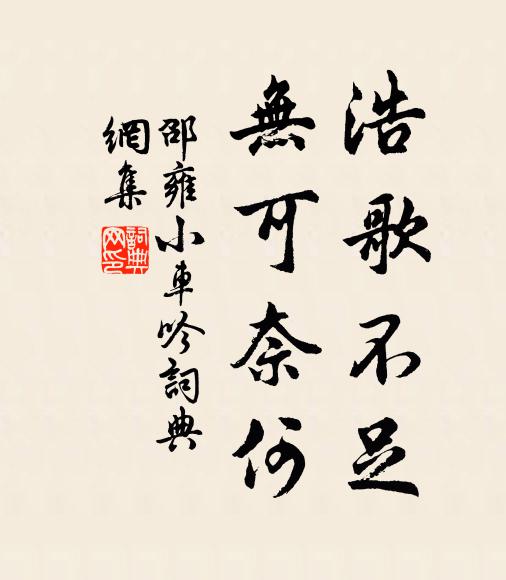 浩歌不足
無可奈何
邵雍小車吟詞典
網集
詞典網印